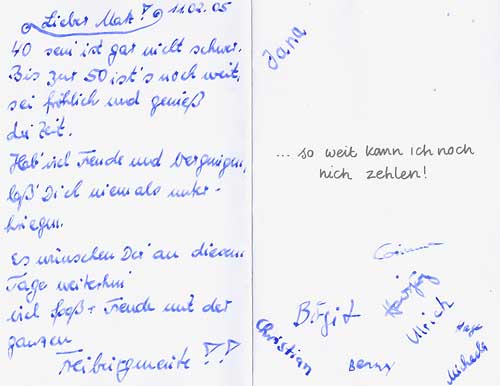 Lieber Mat! 11.02.05
40 sein ist gar nicht schwer.
Bis zur 50 ist's noch weit,
sei fröhlich und genieß
die Zeit.
Hab' viel Freude und Vergnügen,
laß' Dich niemals unter-
kriegen.
Es wünschen Dir an diesem
Tage weiterhin
viel Spaß + Freude mit der
ganzen
Jana
... so weit kann ich noch
nich zehlen!
Birgit
Ulrich
Christian
Benny
Michaela